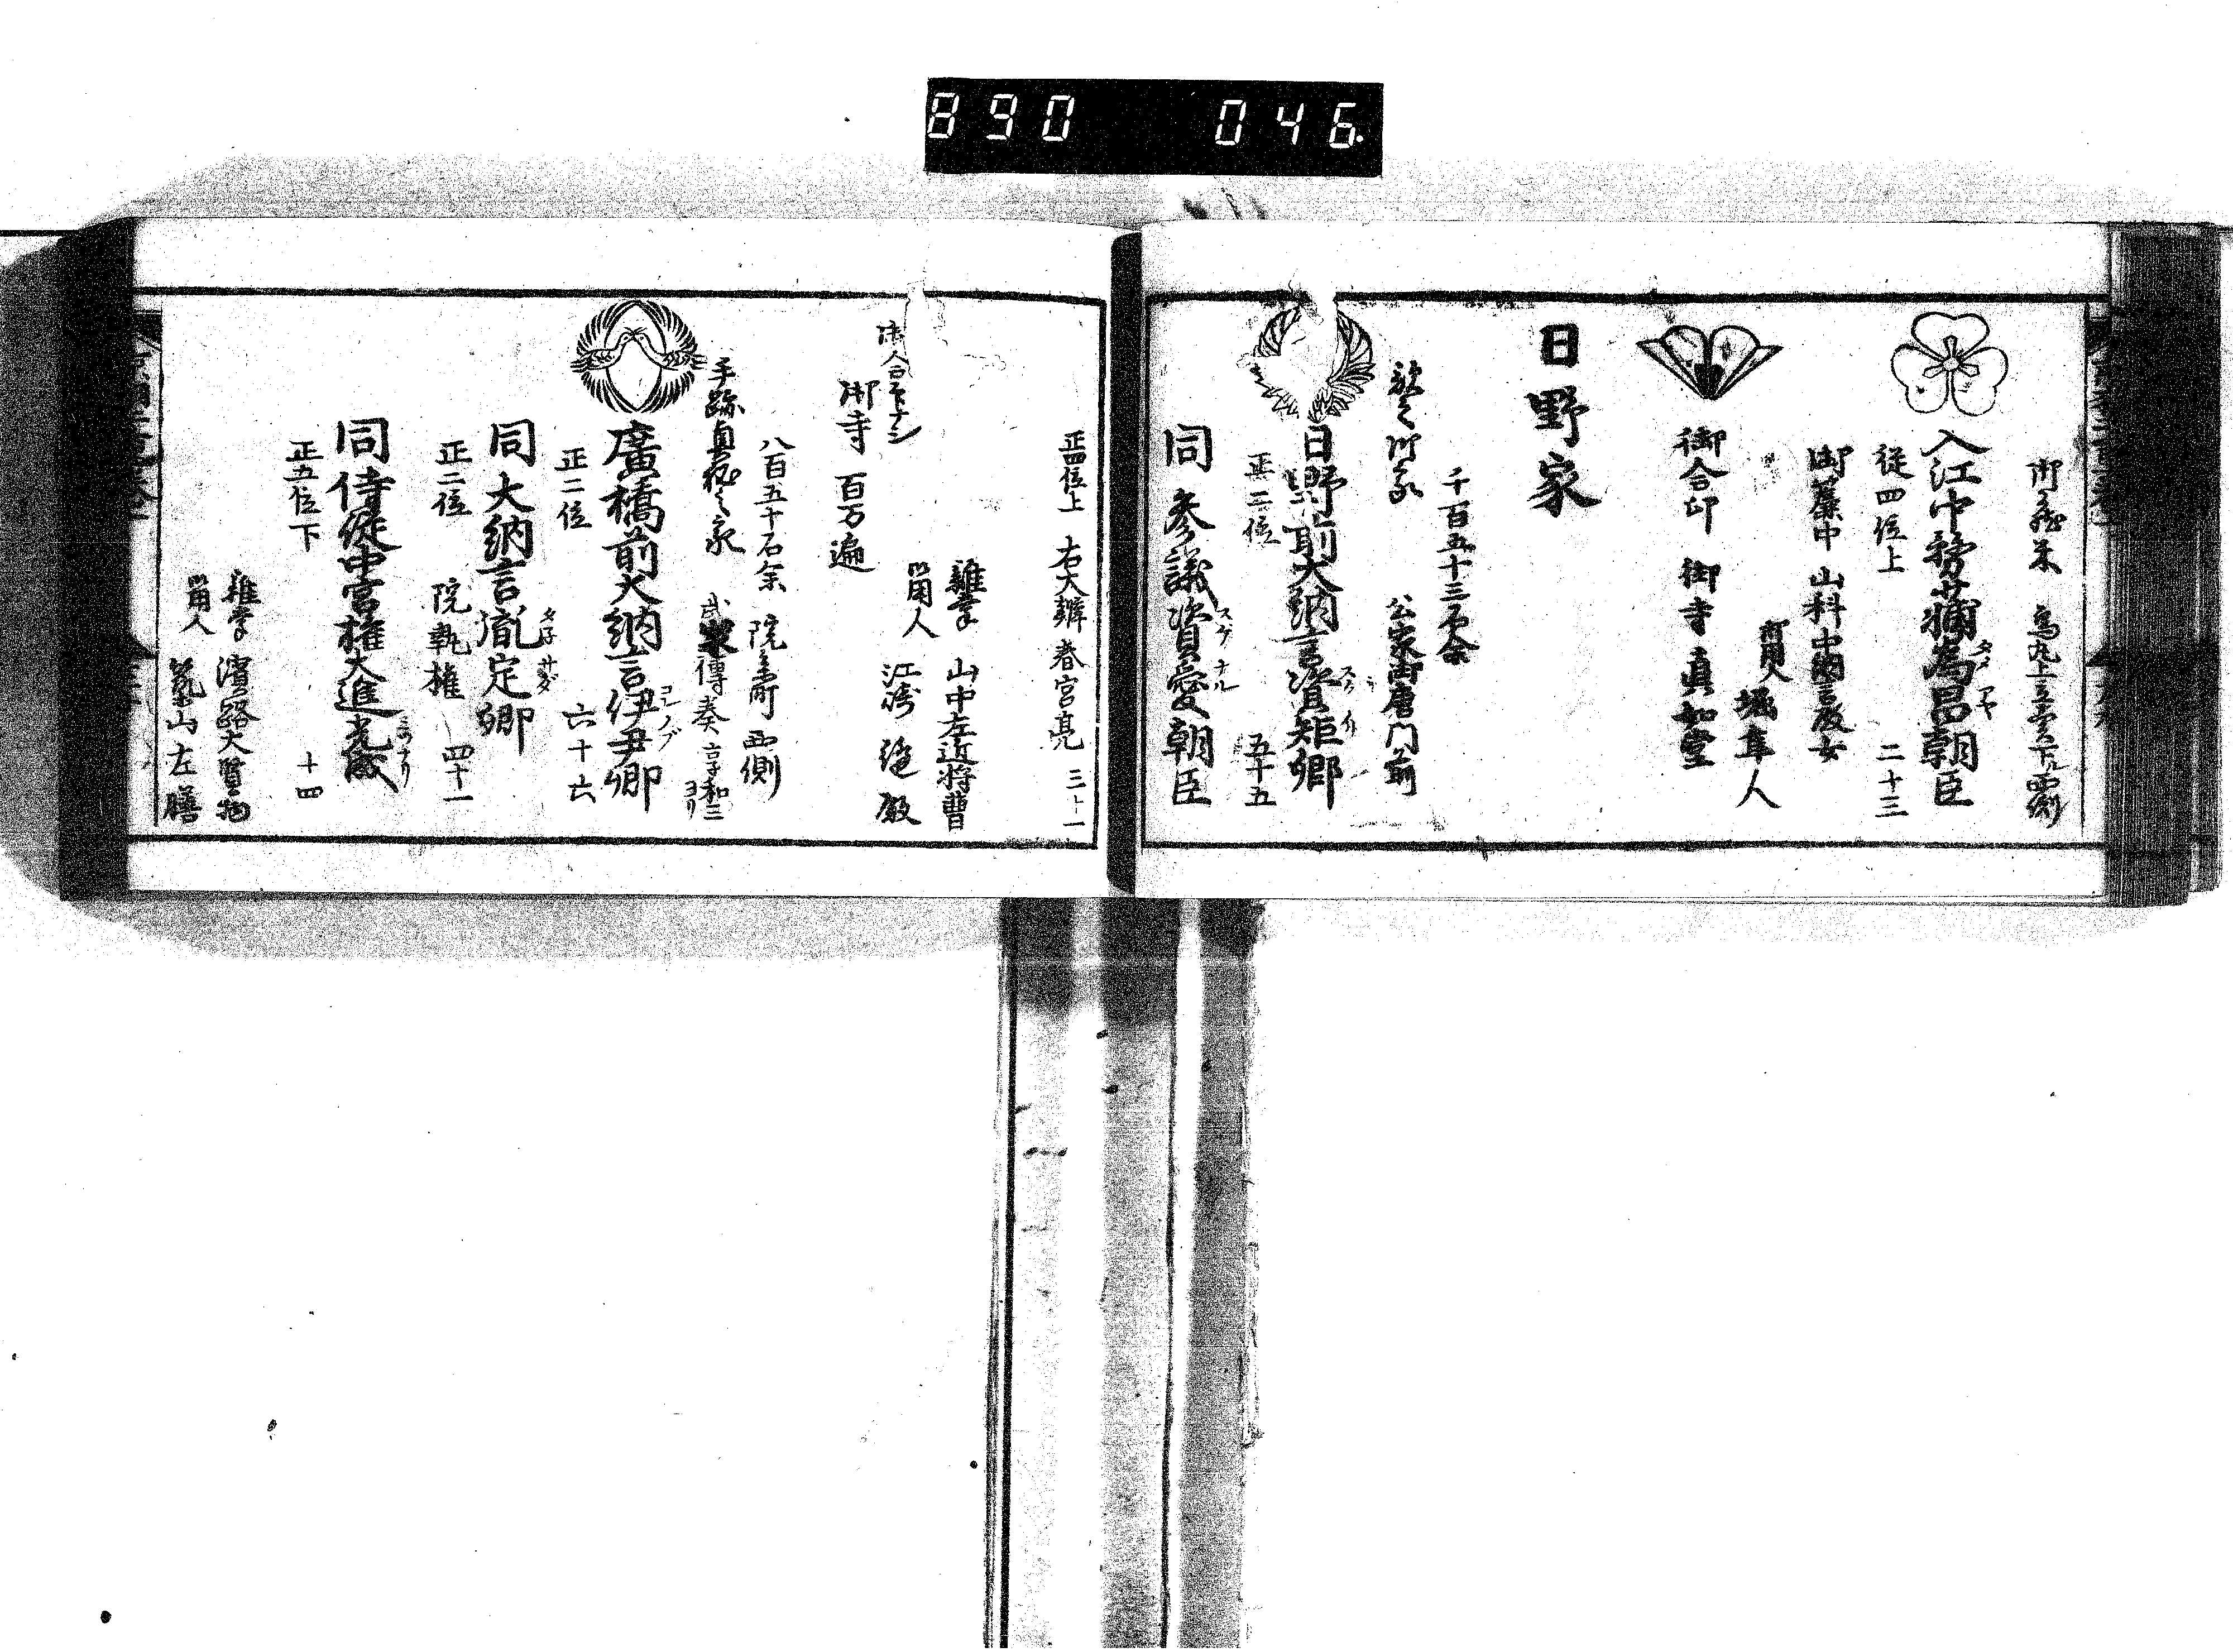 890 046.
御蔵米 烏丸上立売下ル西側
入江中務少輔為昌朝臣
タメ マサ
従四位上 二十三
御簾中 山科中納言殿女
御用人 堀隼人
御合印 御寺 真如堂
日野家
千百五十三石余
歌之御家 公家御唐門前
日野前大納言資矩卿
正二位 五十五
同 参議資愛朝臣
スケ ナル
正四位上 右大辨 春宮亮 三十一
雑掌 山中左近将曹
御用人
御合印ナシ
御寺 百万遍
八百五十石余 院参町 西側
武家傳奏 享和三ヨリ
廣橋前大納言伊光卿
正二位 六十六
同 大納言胤定卿
タネ サダ
正二位 院執権 四十一
同 侍従中宮権大進光成
正五位下 十四
雑掌 濱路大監物
御用人 藝山左膳